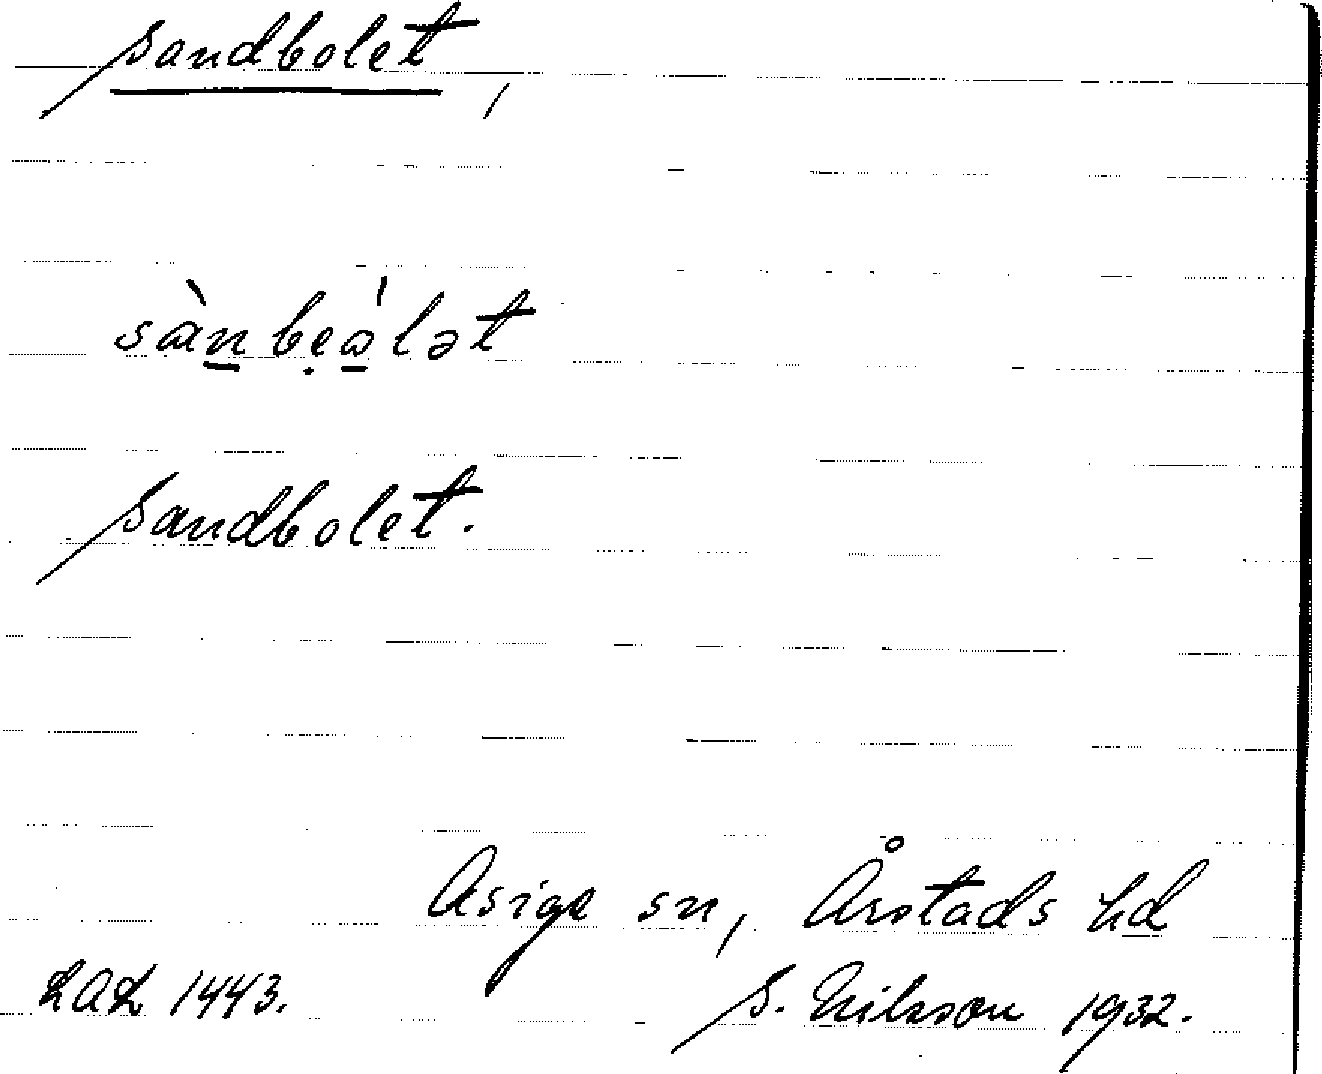 Sandbolet,
sàn̲bẹɷ̲́lət
Sandbolet.
Asige sn, Årstads hd
LAL 1443.
S. Nilsson 1932.